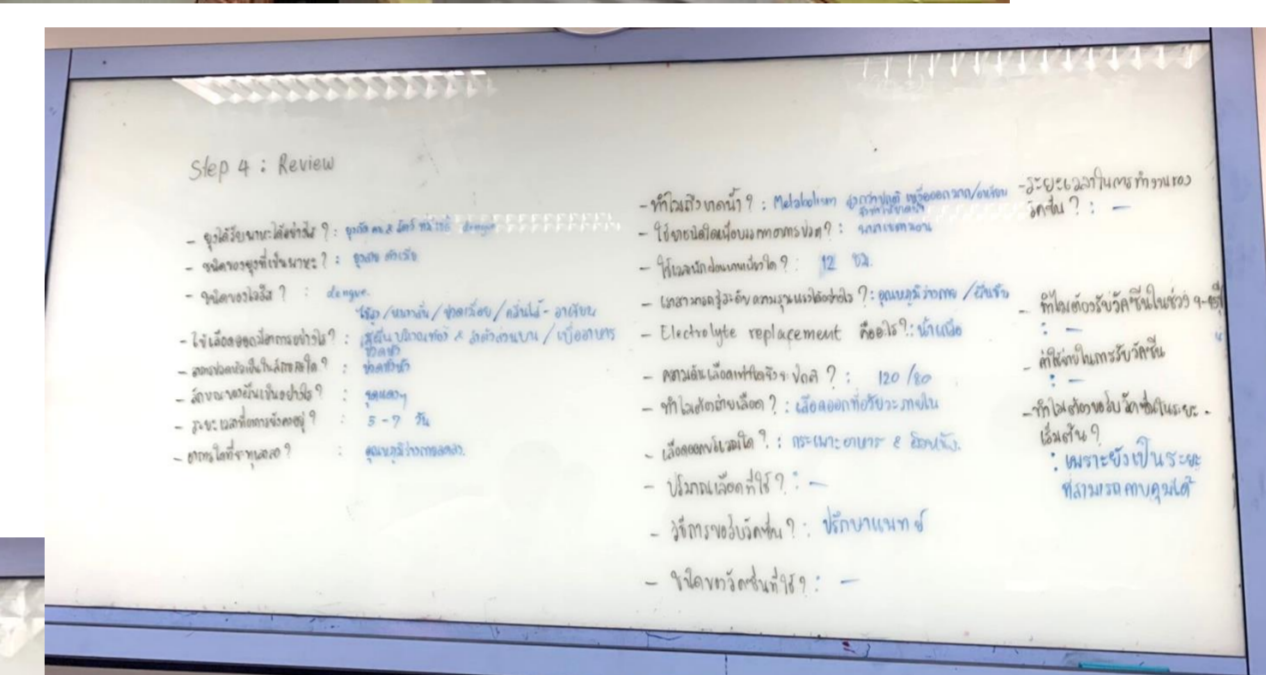 Step 4 : Review
- ยุงได้รับพาหะได้อย่างไร ? : ยุงกัด คน & สัตว์ ที่มีเชื้อ dengue
- ชนิดของยุงที่เป็นพาหะ ? : ยุงลาย ตัวเมีย
- ชนิดของไวรัส ? : dengue.
ไข้สูง / หนาวสั่น / ปวดเมื่อย / คลื่นไส้ - อาเจียน
- ไข้เลือดออกมีอาการอย่างไร ? : มีผื่น บริเวณท้อง & ลำตัวส่วนบน / เบื่ออาหาร
ปวดหัว
- อาการปวดหัวเป็นในลักษณะใด ? : ปวดทั้งหัว
- ลักษณะของผื่นเป็นอย่างไร ? : จุดแดงๆ
- ระยะเวลาที่อาการยังคงอยู่ ? : 5 - 7 วัน
- อาการใดที่จะทุเลาลง ? : อุณหภูมิร่างกายลดลง.
- ทำไมถึงขาดน้ำ ? : Metabolism สูงกว่าปกติ เหงื่อออกมาก/อาเจียน
- ใช้ยาชนิดใดเพื่อบรรเทาอาการปวด ? :
- ใช้เวลานักอนนานเพียงใด ? : 12 ชม.
- เราสามารถรู้ระดับความรุนแรงได้อย่างไร ? : อุณหภูมิร่างกาย / ผื่นขึ้น
- Electrolyte replacement คืออะไร ? : น้ำเกลือ
- ความดันเลือดเท่าใดจึงจะปกติ ? : 120 /80
- ทำไมต้องถ่ายเลือด ? : เลือดออกที่อวัยวะภายใน
- เลือดออกบริเวณใด ? : กระเพาะอาหาร & ผิวหนัง.
- ปริมาณเลือดที่ใช้ ? : -
- วิธีการขอรับวัคซีน ? : ปรึกษาแพทย์
- ชนิดของวัคซีนที่ใช้ ? : -
- ระยะเวลาในการทำงานของ
วัคซีน ? : -
- ทำไมต้องรับวัคซีนในช่วง 9-45ปี
: -
- ค่าใช้จ่ายในการรับวัคซีน
: -
- ทำไมต้องขอรับวัคซีนในระยะ -
เริ่มต้น ?
: เพราะยังเป็นระยะ
ที่สามารถควบคุมได้